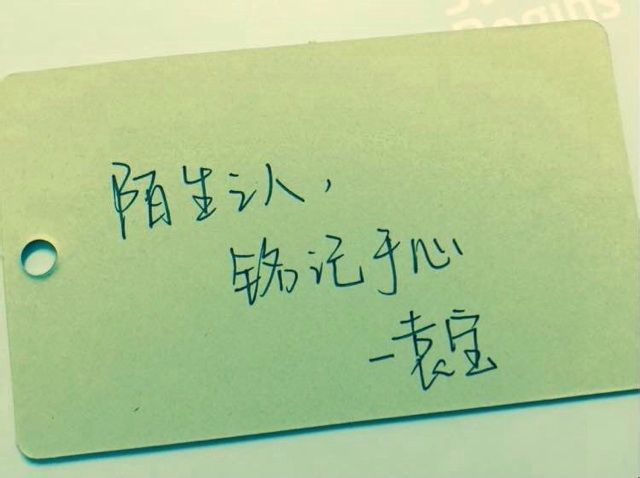 Begins
陌生之人，
铭记于心
-袁宝